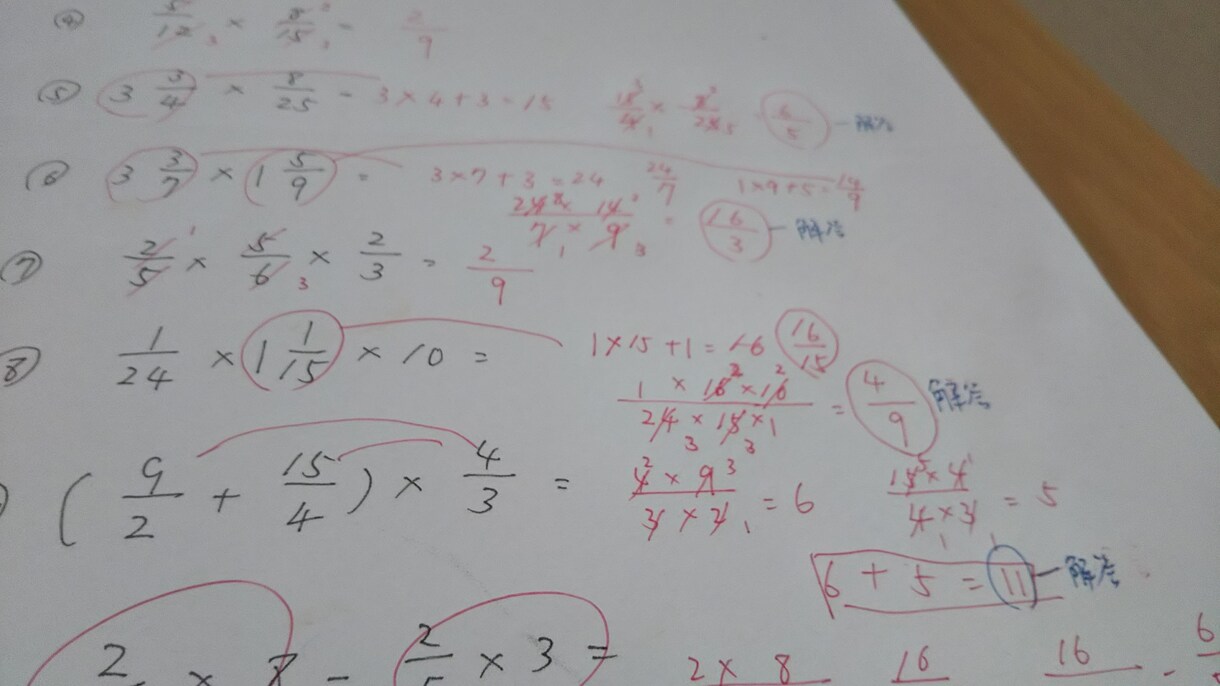 ④ 5/12 3 × 8/15 2 3 = 2/9
⑤ 3 3/4 × 8/25 = 3 × 4 + 3 = 15 15/4 3 1 × 8/25 2 5 6/5 ー解答
⑥ 3 3/7 × 1 5/9 = 3 × 7 + 3 = 24 24/7 1 × 9 + 5 = 14/9
24 8 × 14 2 / 7 1 × 9 3 = 16/3 ー解答
⑦ 2/5 1 × 5/6 3 × 2/3 = 2/9
⑧ 1/24 × 1 1/15 × 10 = 1 × 15 + 1 = 16 16/15
1 × 16 2 × 10 2 / 24 3 × 15 3 × 1 = 4/9 解答
( 9/2 + 15/4 ) × 4/3 = 4 2 × 9 3 / 3 × 2 1 = 6 15 5 × 4 1 / 4 1 × 3 1 = 5
6 + 5 = 11 ー解答
2 × 8 - 2/5 × 3 = 2 × 8 16 16 - 6